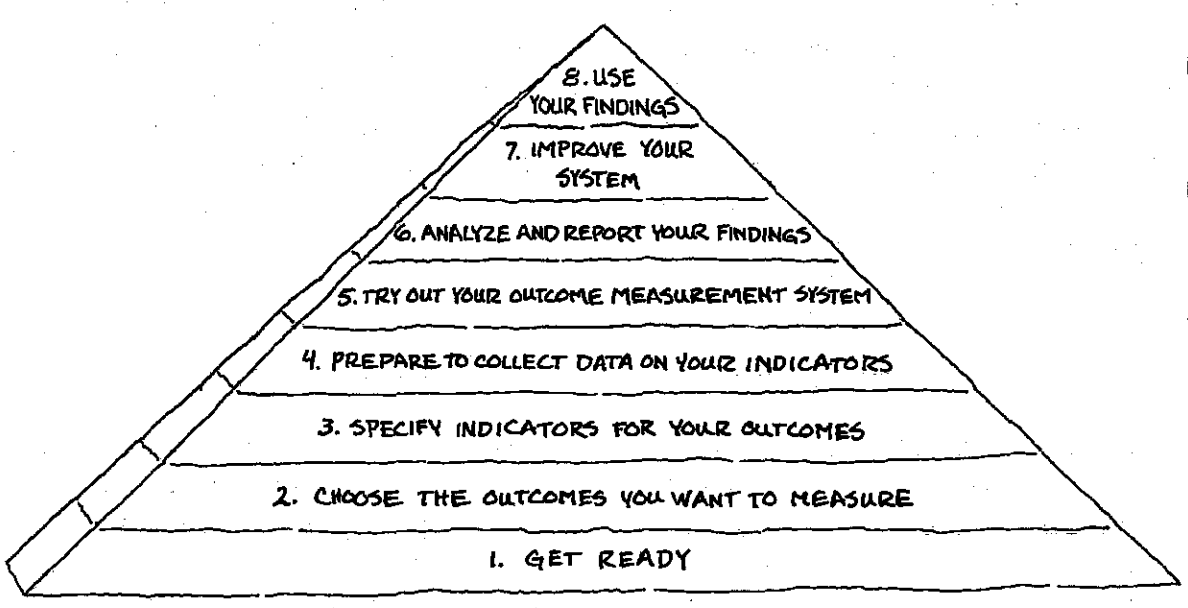 8. USE
YOUR FINDINGS
7. IMPROVE YOUR
SYSTEM
6. ANALYZE AND REPORT YOUR FINDINGS
5. TRY OUT YOUR OUTCOME MEASUREMENT SYSTEM
4. PREPARE TO COLLECT DATA ON YOUR INDICATORS
3. SPECIFY INDICATORS FOR YOUR OUTCOMES
2. CHOOSE THE OUTCOMES YOU WANT TO MEASURE
1. GET READY